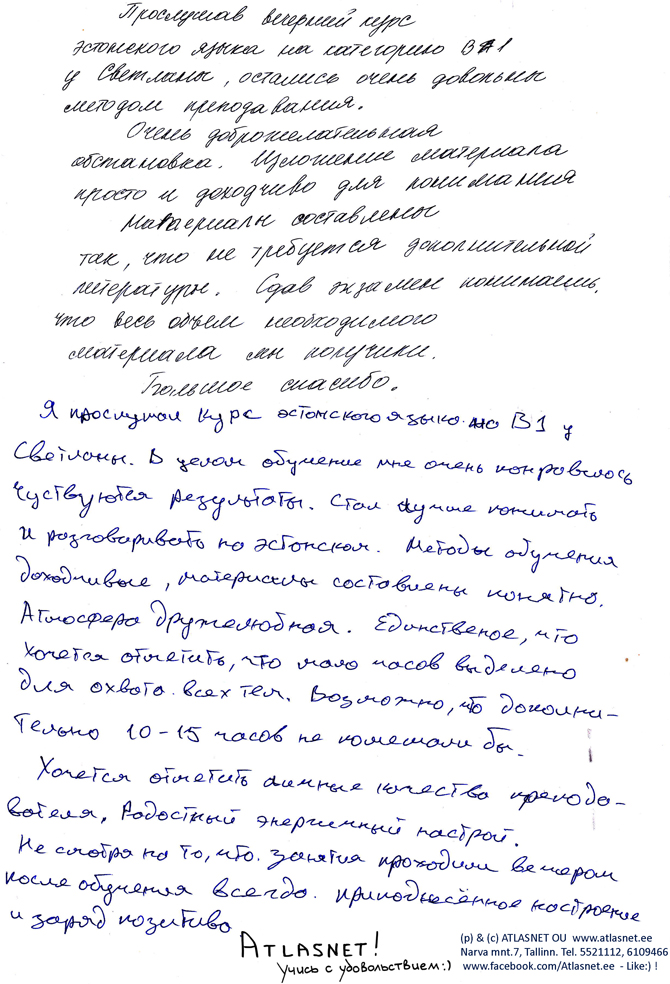 Прослушав вечерний курс
эстонского языка на категорию B1
у Светланы, остались очень довольны
методом преподавания.
Очень доброжелательная
обстановка. Изложение материала
просто и доходчиво для понимания
Материалы составлены
так, что не требуется дополнительной
литературы. Сдав экзамен понимаешь,
что весь объем необходимого
материала мы получили.
Большое спасибо.
Я прослушал курс эстонского языка на B1 у
Светланы. В целом обучение мне очень понравилось
Чуствуются результаты. Стал лучше понимать
и разговаривать на эстонском. Методы обучения
доходчивые, материалы составлены понятно.
Атмосфера дружелюбная. Единственое, что
хочется отметить, что мало часов выделено
для охвата всех тем. Возможно, что дополни-
тельно 10-15 часов не помешали бы.
Хочется отметить личные качества препода-
вателя. Радостный энергичный настрой.
Не смотря на то, что занятия проходили вечером
после обучения всегда приподнесённое настроение
и заряд позитива
ATLASNET!
Учись с удовольствием:)
(p) & (c) ATLASNET OU www.atlasnet.ee
Narva mnt.7, Tallinn. Tel. 5521112, 6109466
www.facebook.com/Atlasnet.ee - Like:) !